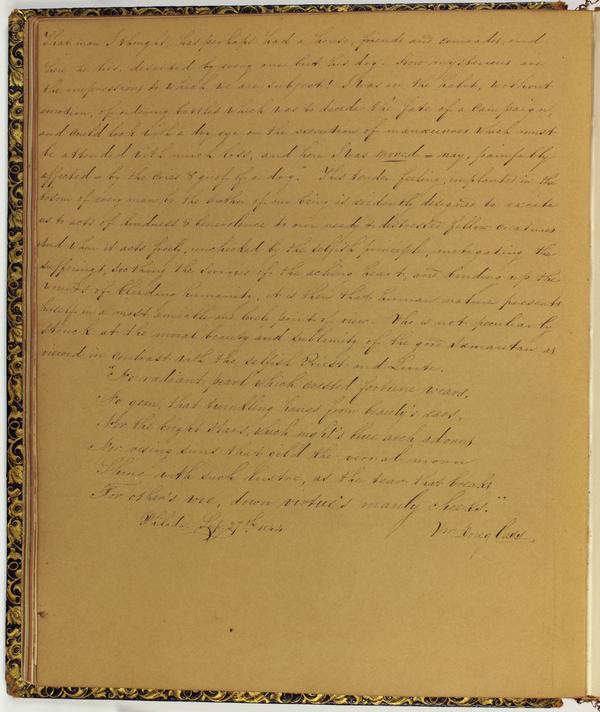 That man I thought, has perhaps had a house, friends and comrades, and
here he lies, deserted by every one but his dog. How mysterious are
the impressions to which we are subject! I was in the habit, without
emotion, of ordering battles which was to decide the fate of a campaign,
and could look with a dry eye on the execution of manœuvres which must
be attended with much loss, and here I was moved – nay, painfully
affected – by the cries & grief of a dog." This tender feeling, implanted in the
bosom of every man by the author of our being is evidently designed to excite
us to acts of kindness & benevolence to our needy & distressed fellow creatures
And when it acts freely, unchecked by the selfish principle, mitigating the
sufferings, soothing the sorrows of the aching heart, and binding up the
wounds of bleeding humanity, it is then that human nature presents
herself in a most amiable and lovely point of view. Who is not peculiarly
struck at the moral beauty and sublimity of the good Samaritan as
viewed in contrast with the selfish Priest and Levite.
"No radiant pearl which crested fortune wears,
No gem, that twinkling hangs from beauty's ears,
Nor the bright stars, which night's blue arch adorn,
Nor rising suns that gild the vernal morn
Shine with such lustre, as the tear that breaks
For other's woe, down virtue's manly cheeks."
Philada. 27th 1844
Wm